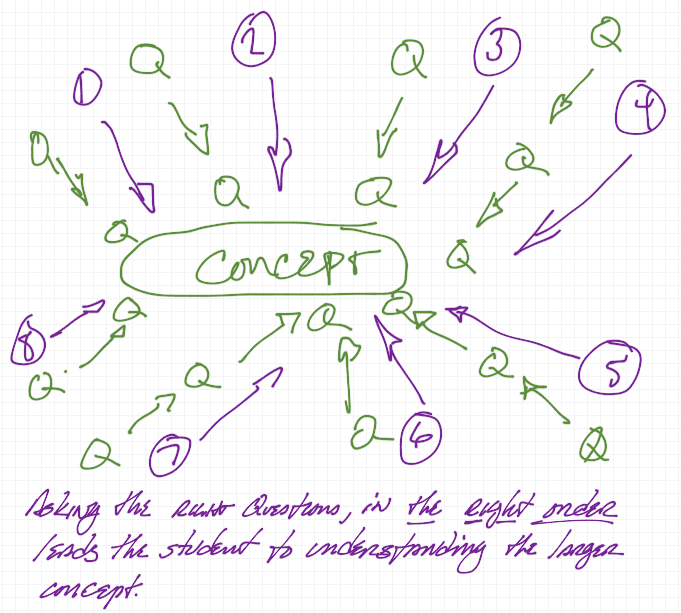 Q
2
Q
3
Q
1
4
Q
Q
Q
Q
Q
Q
Concept
Q
Q
Q
Q
8
Q
Q
Q
5
Q
7
Q
6
Q
Asking the Right Questions, in the Right order
leads the student to understanding the larger
concept.